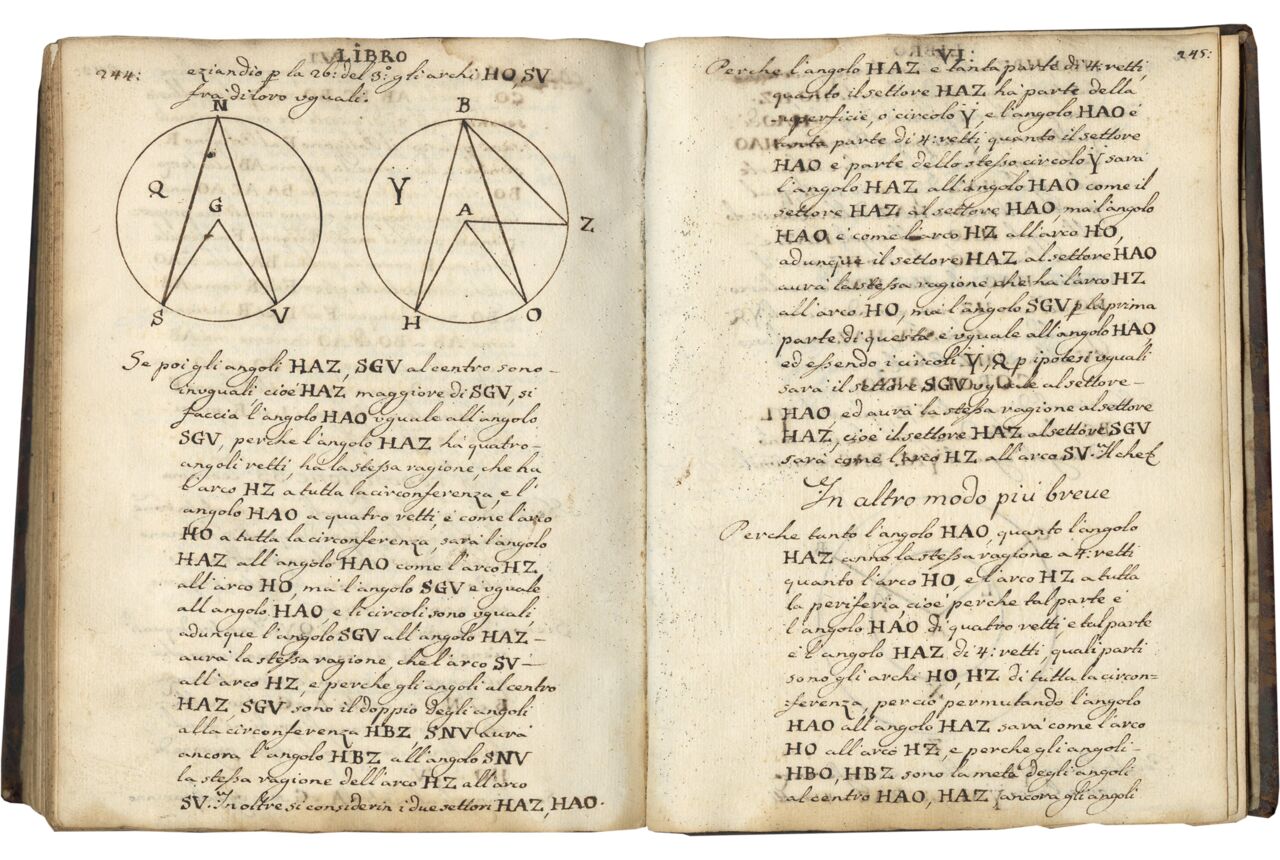 LIBRO
244:
eziandio p la 26: del 3º: gli archi HO, SV
fra di loro vguali.
N
B
Q
Y
G
A
Z
S
V
H
O
Se poi gli angoli HAZ, SGV al centro sono
inuguali cioé HAZ maggiore di SGV, si
faccia l'angolo HAO vguale all'angolo
SGV, perche l'angolo HAZ há quatro
angoli retti, ha la stessa ragione, che ha
l'arco HZ a tutta la circonferenza, e l'
angolo HAO a quatro retti é come l'arco
HO a tutta la circonferenza, sará l'angolo
HAZ all'angolo HAO come l'arco HZ
all'arco HO, ma l'angolo SGV é vguale
all'angolo HAO e li circoli sono vguali,
adunque l'angolo SGV all'angolo HAZ
aurá la stessa ragione, che l'arco SV
all'arco HZ, e perche gli angoli al centro
HAZ, SGV sono il doppio degli angoli
alla circonferenza HBZ SNV aurá
ancora l'angolo HBZ all'angolo SNV
la stessa ragione dell'arco HZ all'arco
SV. In oltre si considerin i due settori HAZ, HAO.
VI:
245:
Perche l'angolo HAZ e tanta parte di 4: retti,
quanto il settore HAZ ha parte della
superficie, ó circolo Y, e l'angolo HAO é
tanta parte di 4: retti, quanto il settore
HAO é parte dello stesso circolo Y sará
l'angolo HAZ all'angolo HAO come il
settore HAZ al settore HAO, ma l'angolo
HAO é come l'arco HZ all'arco HO,
adunque il settore HAZ al settore HAO
aurá la stessa ragione che ha l'arco HZ
all'arco HO, ma l'angolo SGV p la prima
parte di questa é vguale all'angolo HAO
ed essendo i circoli Y, Q p ipotesi vguali
sará il settore SGV vguale al settore
HAO, ed aurá la stessa ragione al settore
HAZ, cioé il settore HAZ al settore SGV
sará come l'arco HZ all'arco SV. Il che &
In altro modo piú breue
Perche tanto l'angolo HAO, quanto l'angolo
HAZ anno la stessa ragione a 4: retti
quanto l'arco HO, e l'arco HZ a tutta
la periferia cioé perche tal parte é
l'angolo HAO di quatro retti e tal parte
é l'angolo HAZ di 4: retti, quali parti
sono gli archi HO, HZ di tutta la circon=
ferenza, perció permutando l'angolo
HAO all'angolo HAZ sará come l'arco
HO all'arco HZ, e perche gli angoli
HBO, HBZ sono la metá degli angoli
al centro HAO, HAZ ancora gli angoli